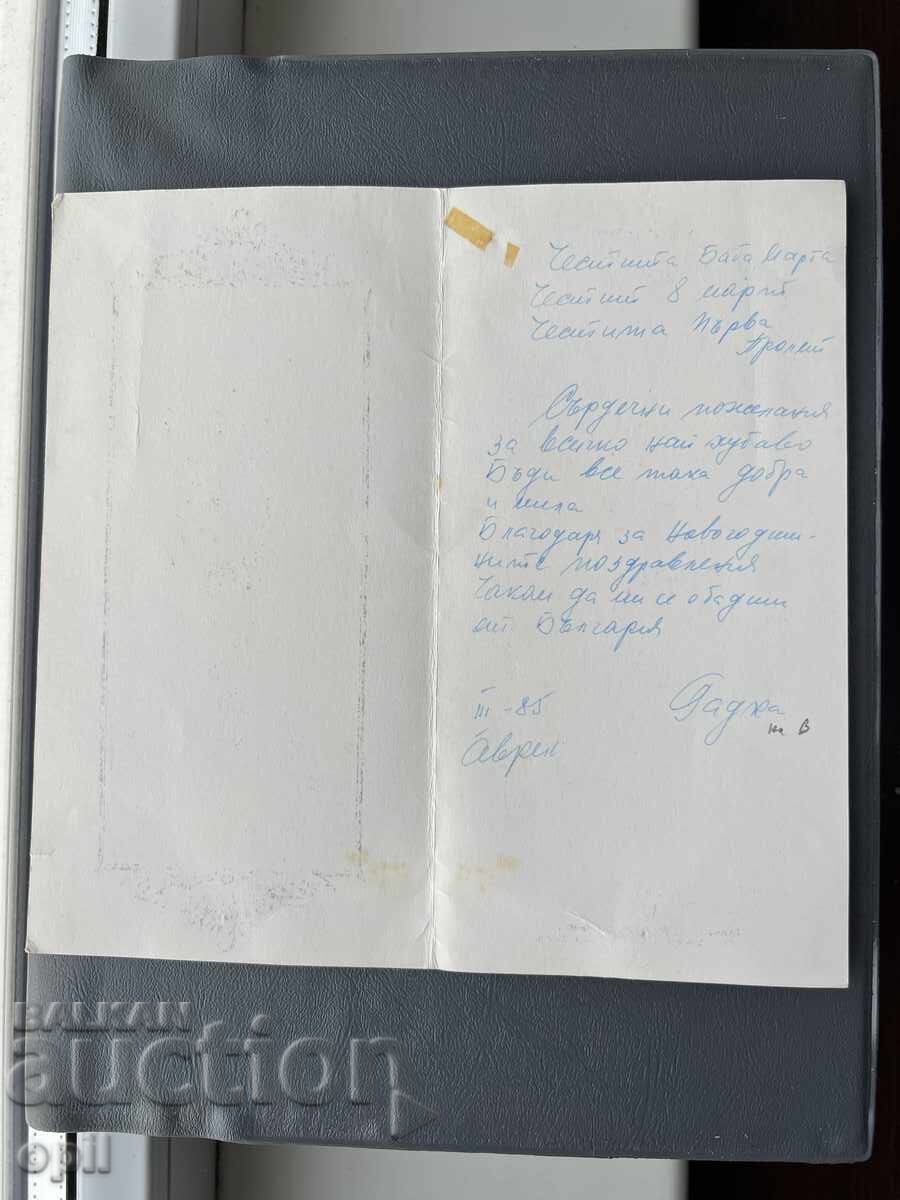 Честита Баба Марта
Честит 8 март
Честита Първа
Пролет
Сърдечни пожелания
за всичко най хубаво
Бъди все така добра
и мила
Благодаря за Новогодиш-
ните поздравления
Чакам да ми се обадиш
от България
III-85
BALKAN
auction
opil